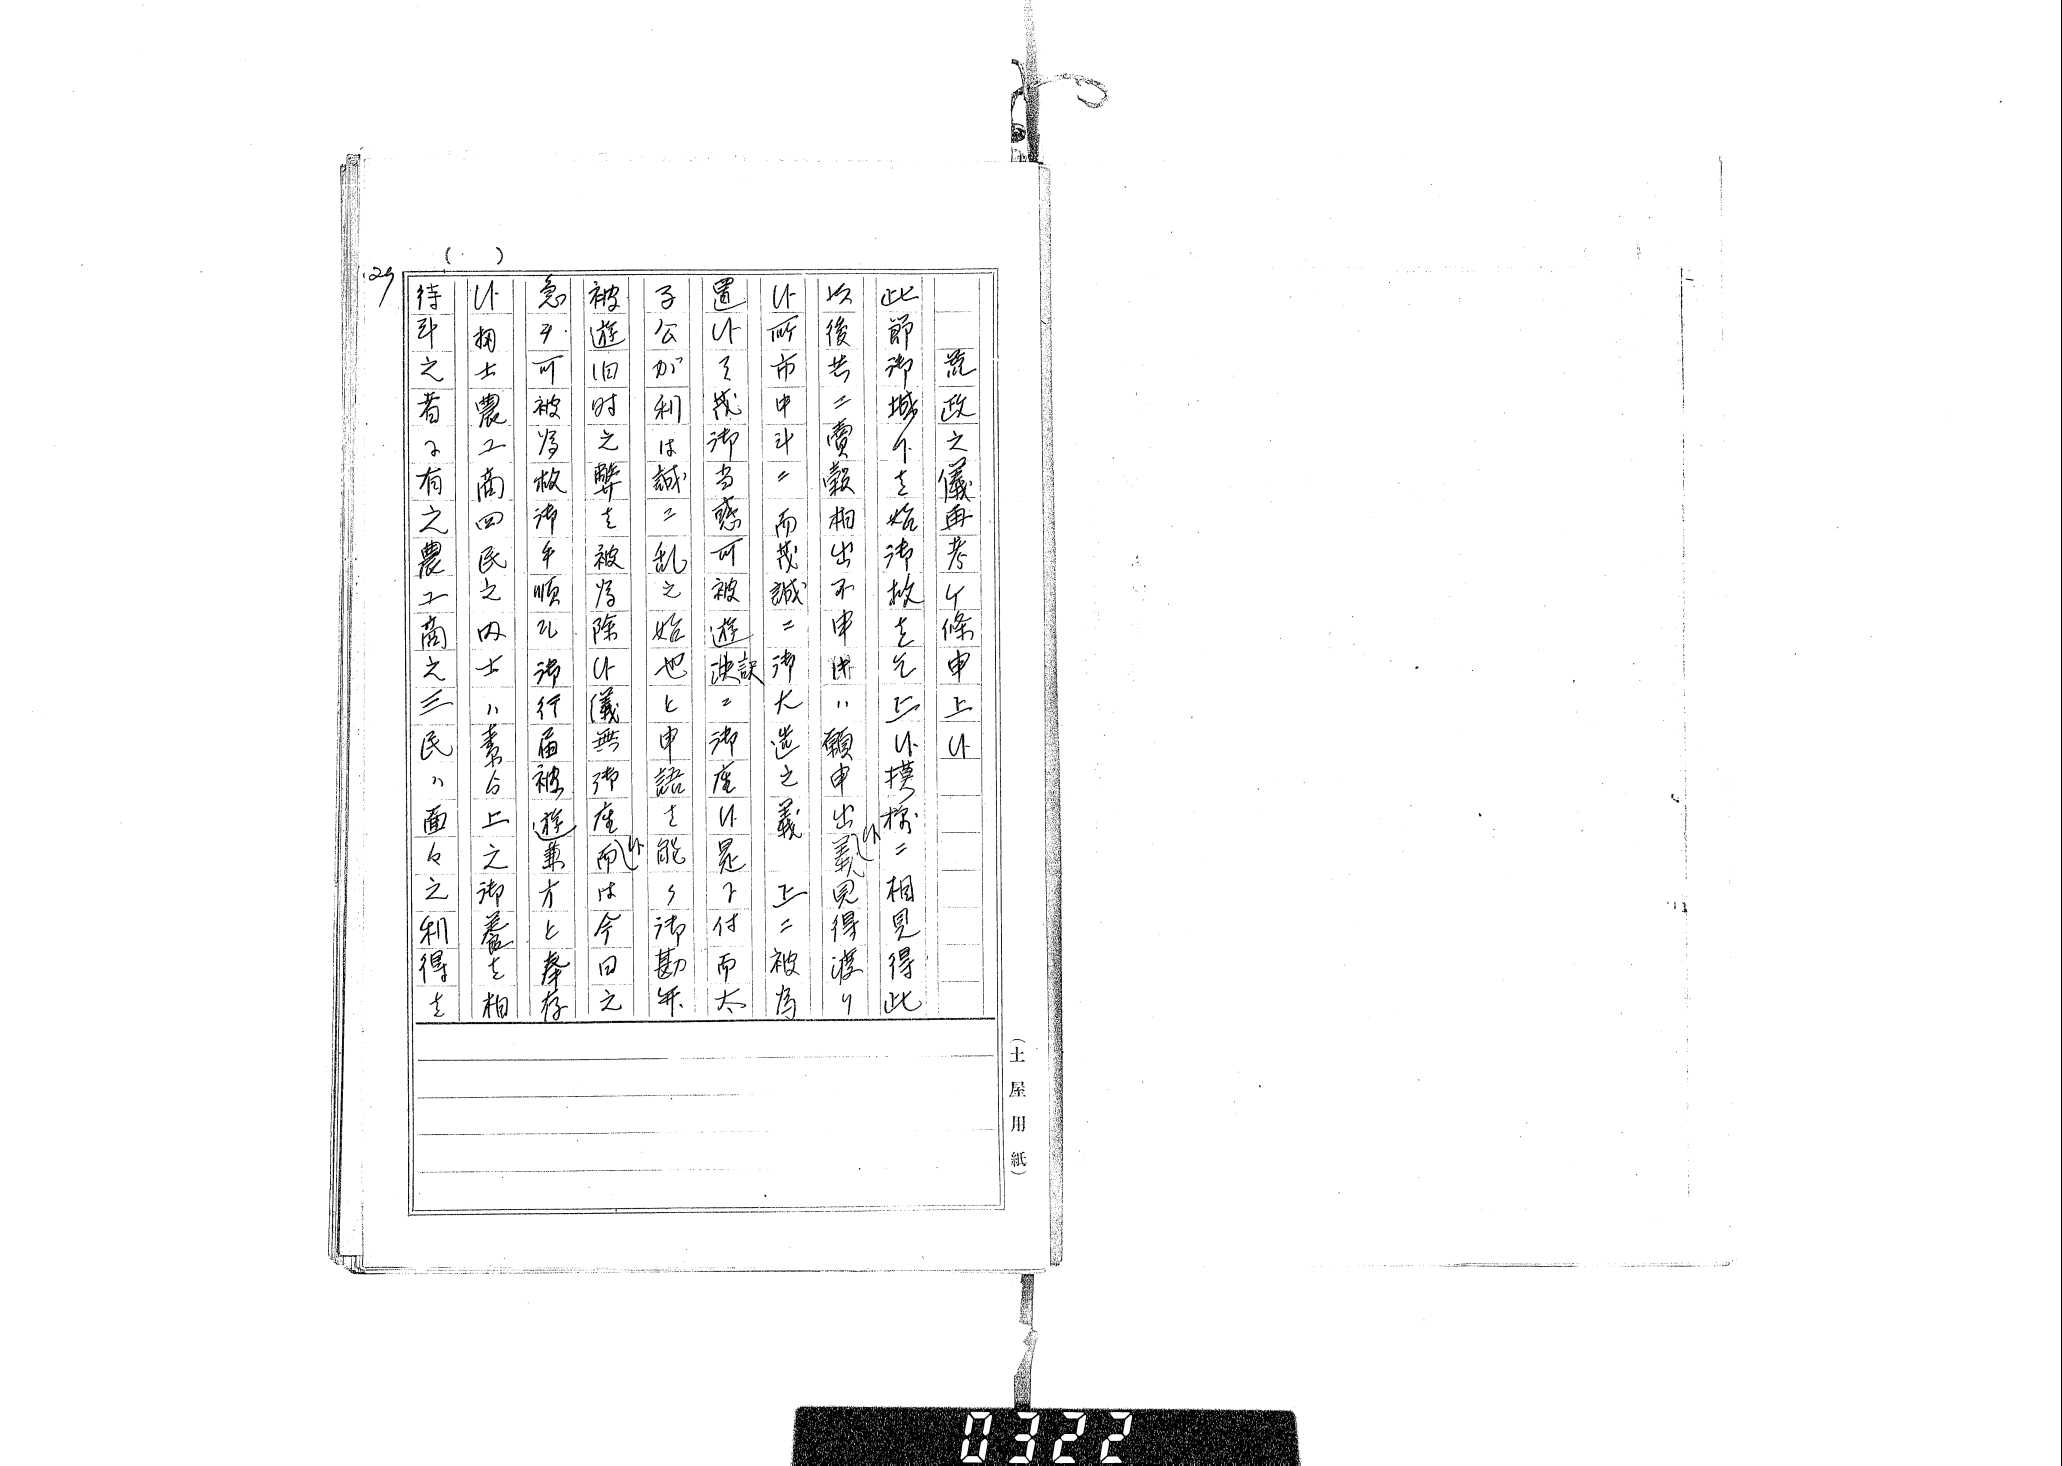 荒政之儀再考ケ條申上候
此節御城下を始御救を乞上候模様ニ相見得此
以後共ニ賣穀相出不申候ハ願申出候義見得渡り
候所市中斗ニ而茂誠ニ御大造之義 上ニ被為
置候而茂御当惑可被遊訳ニ御座候是ニ付而太
子公が利は誠ニ乱之始也と申語を能々御勘弁
被遊旧时之弊を被為除候儀無御座候而は今日之
急ヲ可被為救御手順ニ御行届被遊兼方と奉存
候扨士農工商四民之内士ハ素より上之御養を相
待斗之者ニ有之農工商之三民ハ面々之利得を
29
( )
(土屋用紙)
0322